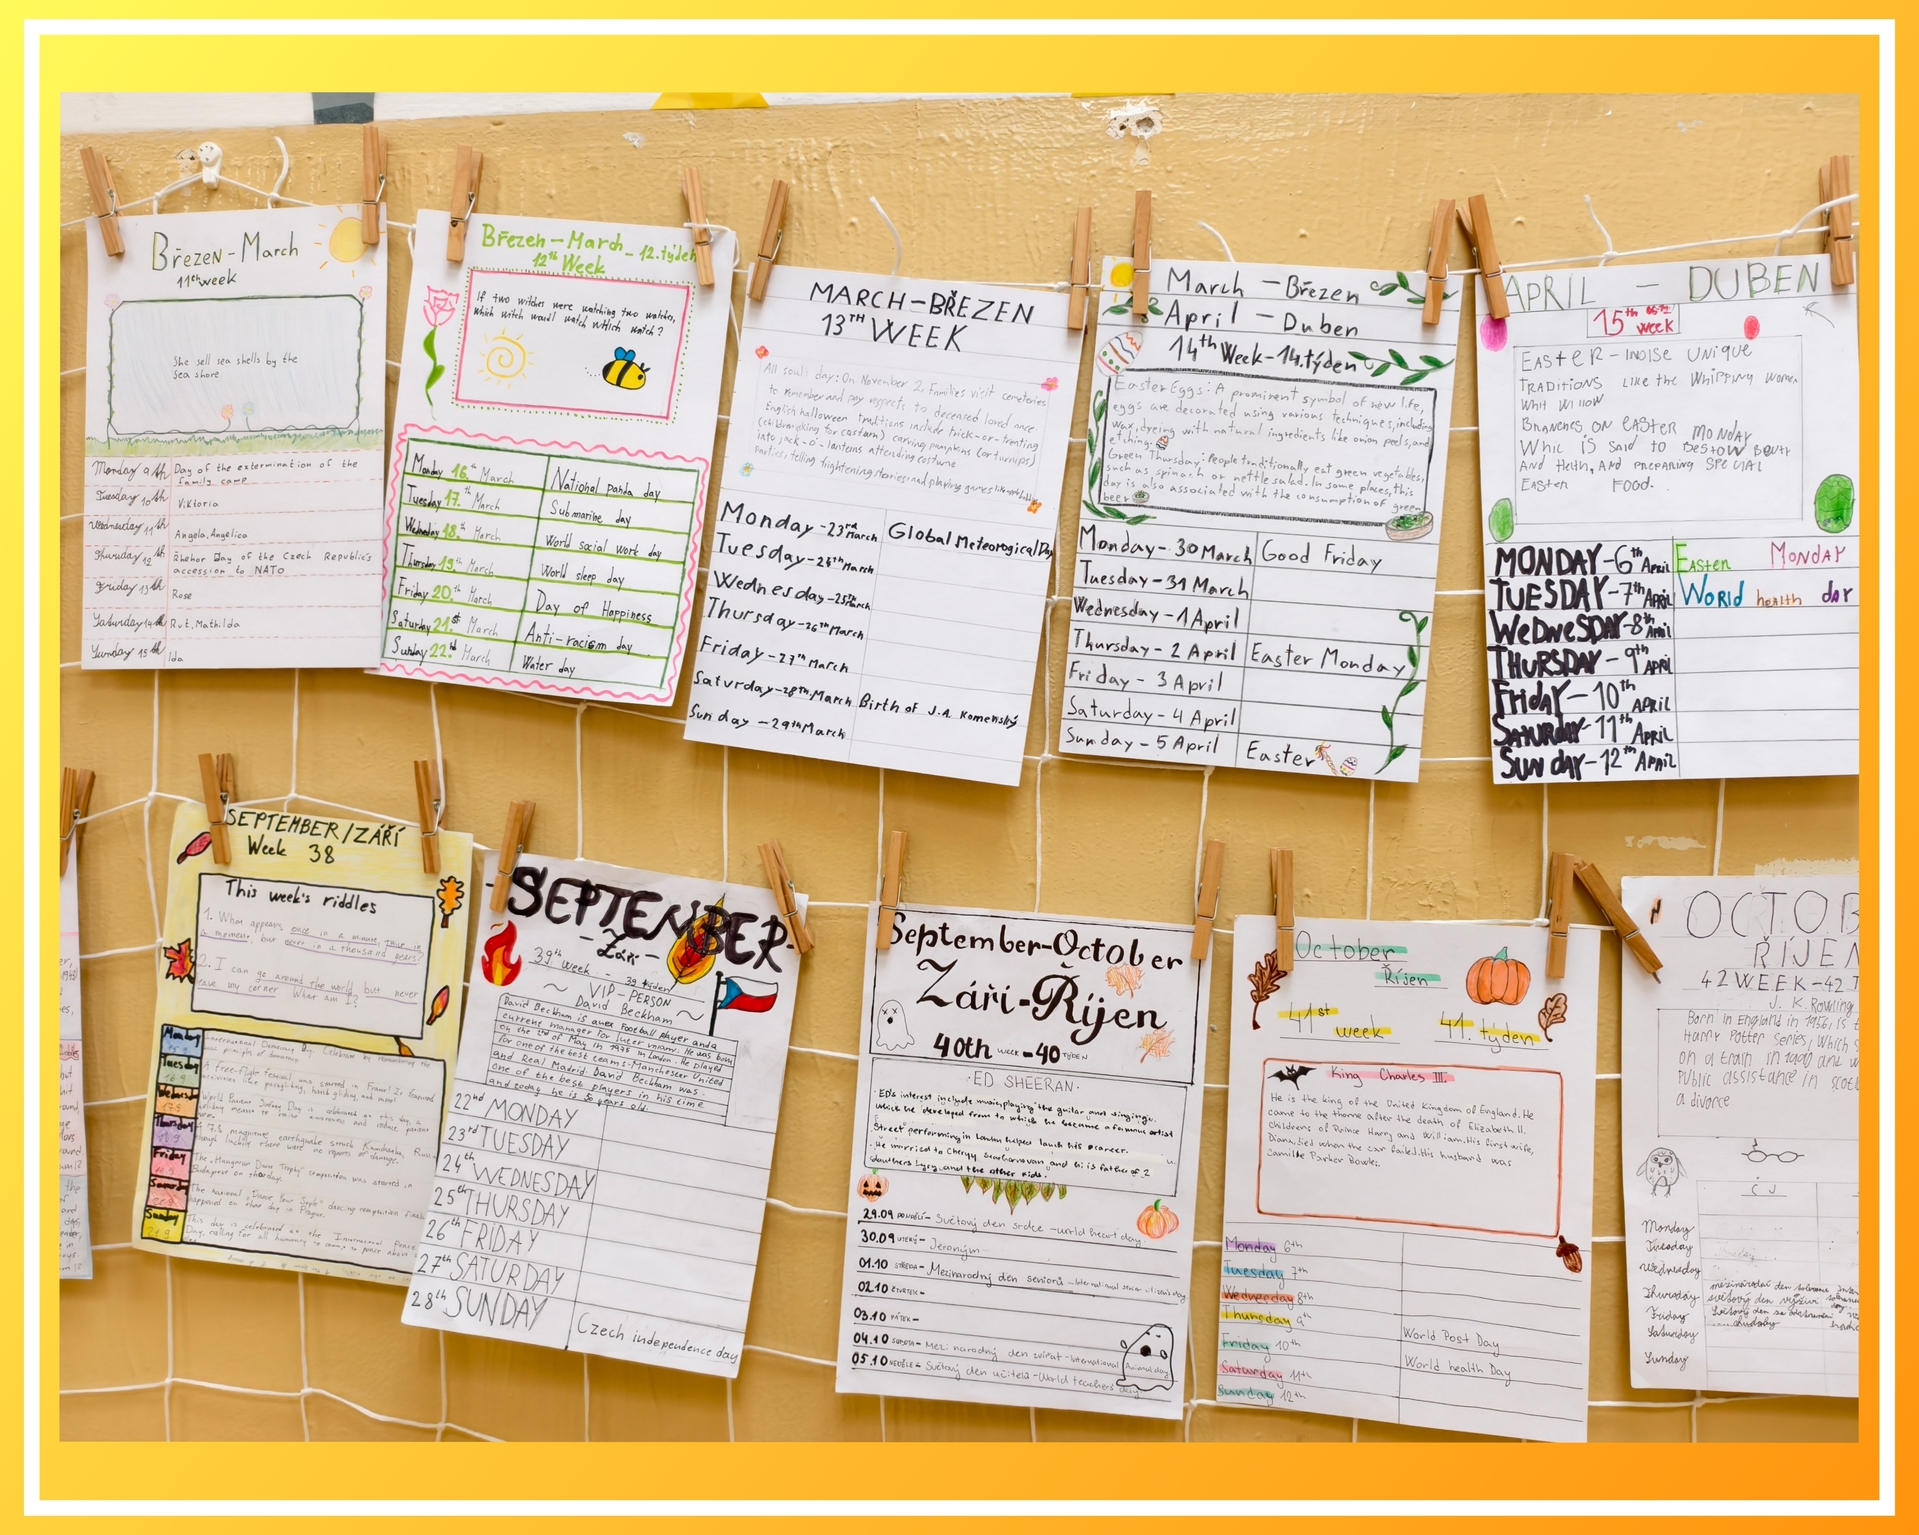 Březen - March
11th week
She sell sea shells by the
sea shore
Monday 9th Day of the extermination of the
family camp
Tuesday 10th Viktoria
Wednesday 11th Angela, Angelica
Thursday 12th Day of the Czech Republic's
accession to NATO
Friday 13th Rose
Saturday 14th Rut, Mathilda
Sunday 15th Ida
Březen - March - 12. týden
12th Week
If two witches were watching two watches,
which witch would watch which watch?
Monday 16th March National panda day
Tuesday 17th March Submarine day
Wednesday 18th March World social work day
Thursday 19th March World sleep day
Friday 20th March Day of Happiness
Saturday 21st March Anti-racism day
Sunday 22nd March Water day
MARCH - BŘEZEN
13TH WEEK
All souls day: On November 2. Families visit cemeteries
to remember and pay respects to deceased loved once.
English halloween traditions include trick-or-treating
carving pumpkins (or turnips)
into jack-o'-lanterns attending costume
parties, telling frightening stories and playing games like
Monday - 23rd March Global Meteorogical Day
Tuesday - 24th March
Wednesday - 25th March
Thursday - 26th March
Friday - 27th March
Saturday - 28th March Birth of J.A. Komenský
Sunday - 29th March
March - Březen
April - Duben
14th Week - 14. týden
Easter Eggs: A prominent symbol of new life,
eggs are decorated using various techniques, including
wax, dyeing with natural ingredients like onion peels, and
etching.
Green Thursday: People traditionally eat green vegetables,
such as spinach or nettle salad. In some places, this
day is also associated with the consumption of green
beer
Monday - 30 March Good Friday
Tuesday - 31 March
Wednesday - 1 April
Thursday - 2 April Easter Monday
Friday - 3 April
Saturday - 4 April
Sunday - 5 April Easter
APRIL - DUBEN
15th week
EASTER - UNIQUE
TRADITIONS LIKE the WHIPPING WOMEN
WHIT WILLOW
BRANCHES ON EASTER MONDAY
WHIC IS SAID TO BESTOW
AND HELTH, AND PREPARING SPECIAL
EASTER FOOD.
MONDAY - 6th April Easter Monday
TUESDAY - 7th April World health day
WEDNESDAY - 8th April
THURSDAY - 9th April
FRIDAY - 10th April
SATURDAY - 11th April
SUNDAY - 12th April
SEPTEMBER / ZÁŘÍ
Week 38
This week's riddles
1. What appears once in a minute, twice in
a moment, but never in a thousand years?
2. I can go around the world but never
leave my corner What am I?
Monday
Tuesday
Wednesd
Thursday
Friday
Saturday
Sunday
SEPTEMBER
- Září -
39th Week - 39 týden
VIP - PERSON
~ David Beckham ~
David Beckham is a ex football player and a
current manager for Inter Miami. He was born
on the 2nd of May in 1975 in London. He played
for one of the best teams - Manchester United
and Real Madrid David Beckham was
one of the best players in his time
and today he is 50 years old.
22nd MONDAY
23rd TUESDAY
24th WEDNESDAY
25th THURSDAY
26th FRIDAY
27th SATURDAY
28th SUNDAY Czech independence day
September-October
Září-Říjen
40th WEEK - 40 TÝDEN
· ED SHEERAN ·
ED's interest include playing the guitar and singing.
which he developed from to which he became a famous artist
Street performing in London helped lauch his career.
He married to Cherry and hi is father of 2
daughters Lyra and the other kids.
29.09 PONDĚLÍ - Světový den srdce - world heart day
30.09 ÚTERÝ - Jeroným
01.10 STŘEDA - Mezinárodný den seniorů - International citizen's day
02.10 ČTVRTEK -
03.10 PÁTEK -
04.10 SOBOTA - Mezi národný den zvířat - International Animal day
05.10 NEDĚLE - Světový den učitelů - World teachers day
October
Říjen
41st week 41. týden
King Charles III.
He is the king of the United Kingdom of England. He
came to the thorne after the death of Elizabeth II.
childrens of Prince Harry and William. His first wife,
Diana, died when the car failed. His husband was
Camille Parker Bowle.
Monday 6th
Tuesday 7th
Wednesday 8th
Thursday 9th
Friday 10th World Post Day
Saturday 11th World health Day
Sunday 12th
OCTOB
ŘÍJEN
42 WEEK - 42 T
J. K. Rowling
Born in England in 1956, is t
Harry Potter series, which s
on a train in 1990 and w
Public assistance in scotl
a divorce
Monday
Tuesday
Wednesday
Thursday
Friday
Saturday
Sunday